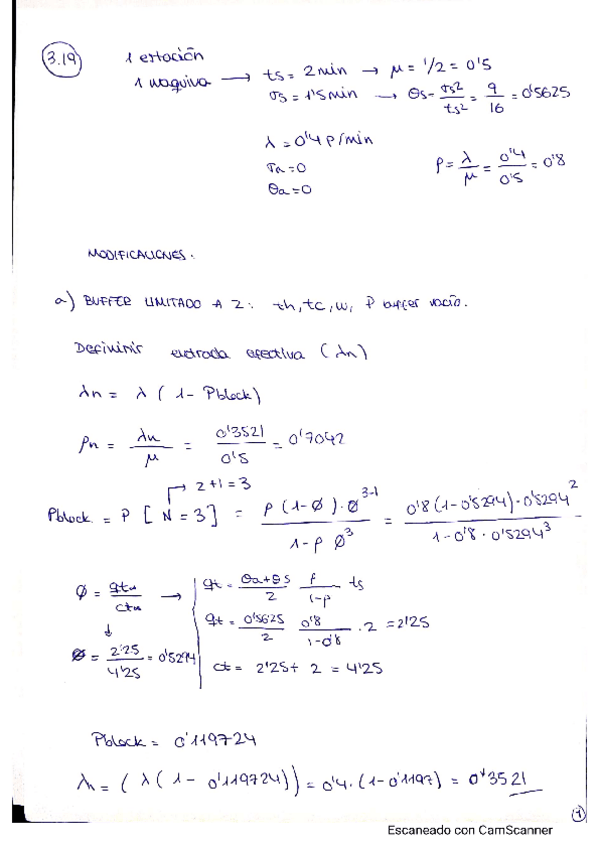 3.19 1 estación
1 maquiva → ts = 2 min → μ = 1/2 = 0'5
σs = 1'5 min → θs = σs²/ts² = 9/16 = 0'5625
λ = 0'4 P/min
σa = 0
θa = 0
ρ = λ/μ = 0'4/0'5 = 0'8
MODIFICACIONES:
a) BUFFER LIMITADO A 2: th, tc, w, P buffer vacío.
Definimir entrada efectiva (λn)
λn = λ (1 - Pblock)
ρn = λn/μ = 0'3521/0'5 = 0'7042
→ 2+1 = 3
Pblock = P [N = 3] = ρ(1-φ)·φ³⁻¹ / 1-ρφ³ = 0'8(1-0'5294)·0'5294² / 1-0'8·0'5294³ =
φ = qt∞/ct∞ → qt = θa+θs/2 ρ/1-ρ ts
qt = 0'5625/2 0'8/1-0'8 · 2 = 2'25
φ = 2'25/4'25 = 0'5294
ct = 2'25 + 2 = 4'25
Pblock = 0'119724
λn = (λ(1 - 0'119724)) = 0'4·(1-0'1197) = 0'3521
1
Escaneado con CamScanner